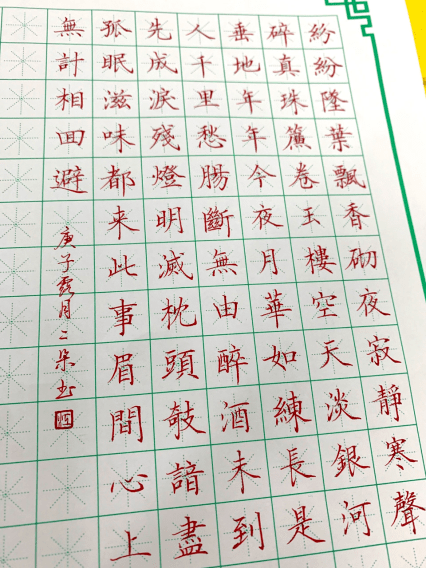 紛紛墜葉飄香砌夜寂靜寒聲
碎真珠簾卷玉樓空天淡銀河
垂地年年今夜月華如練長是
人千里愁腸斷無由醉酒未到
先成淚殘燈明滅枕頭敧諳盡
孤眠滋味都来此事眉間心上
無計相囬避
庚子露月二朵书